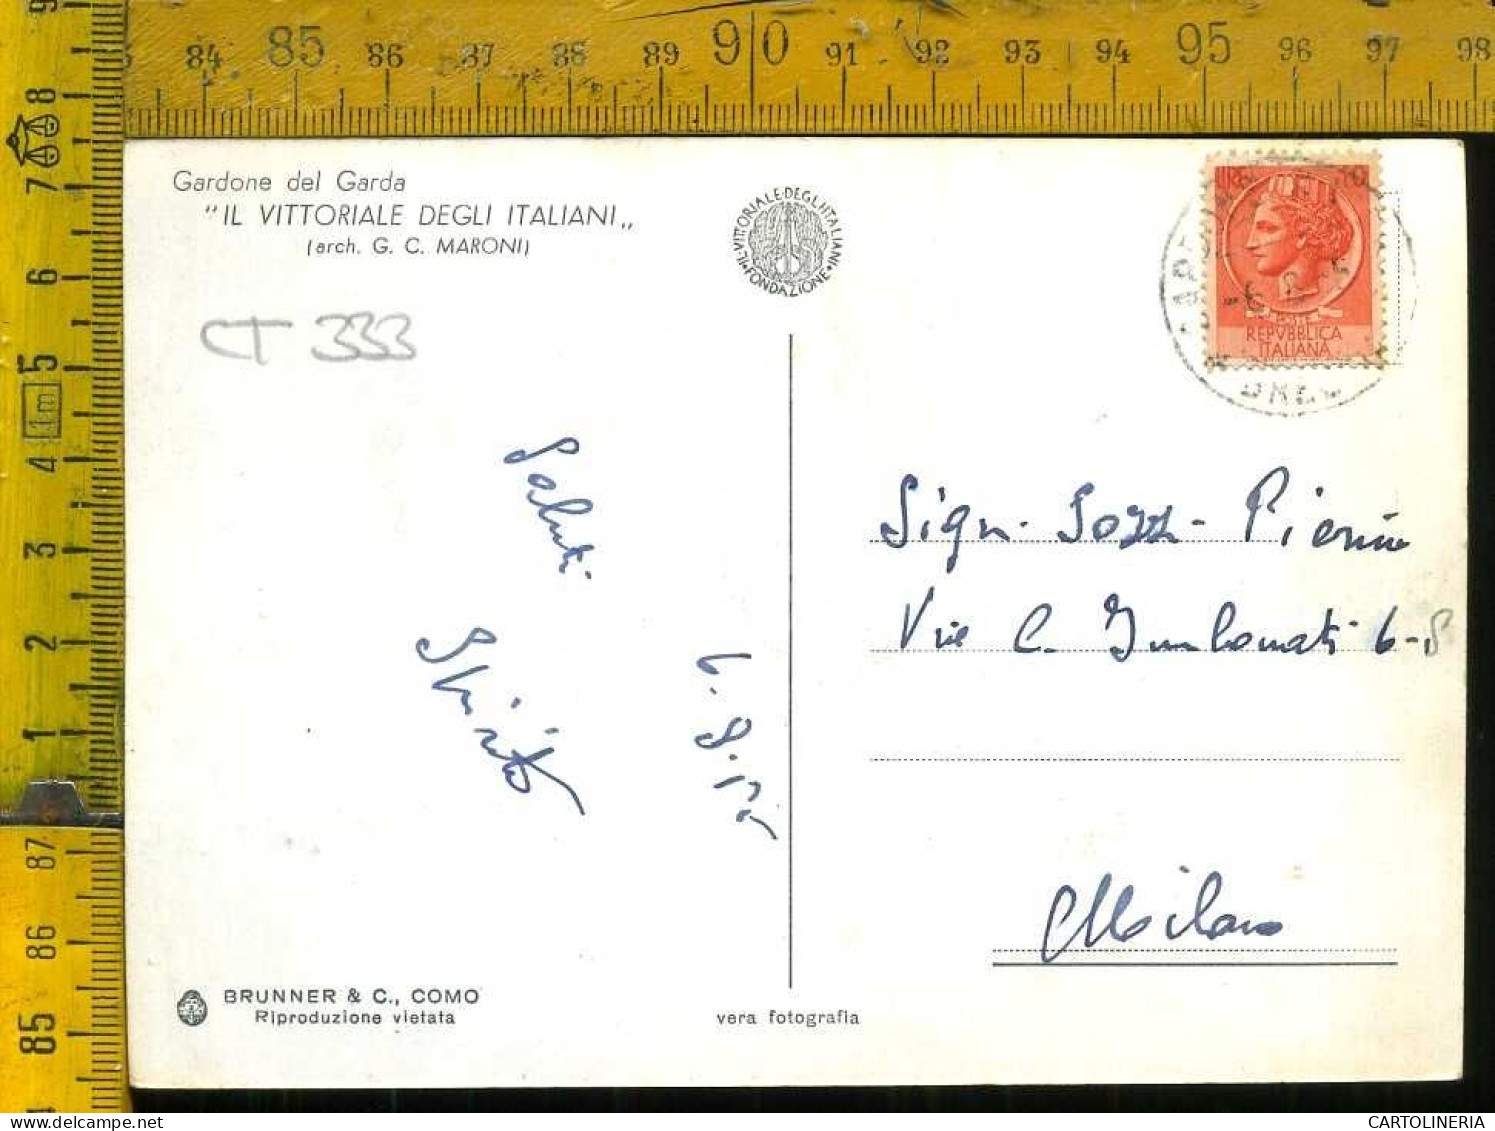 84 85 86 87 88 89 90 91 92 93 94 95 96 97 98
Gardone del Garda
"IL VITTORIALE DEGLI ITALIANI„
(arch. G. C. MARONI)
IL·VITTORIALE·DEGLI·ITALIANI
·FONDAZIONE·
POSTE
REPVBBLICA
ITALIANA
CT 333
Saluti
6. 8.
Sign. Pierina
Via C. Imbonati 6-8
Milano
BRUNNER & C., COMO
Riproduzione vietata
vera fotografia
8
7
6
5
1m
4
3
2
1
87
86
85
CARTOLINERIA